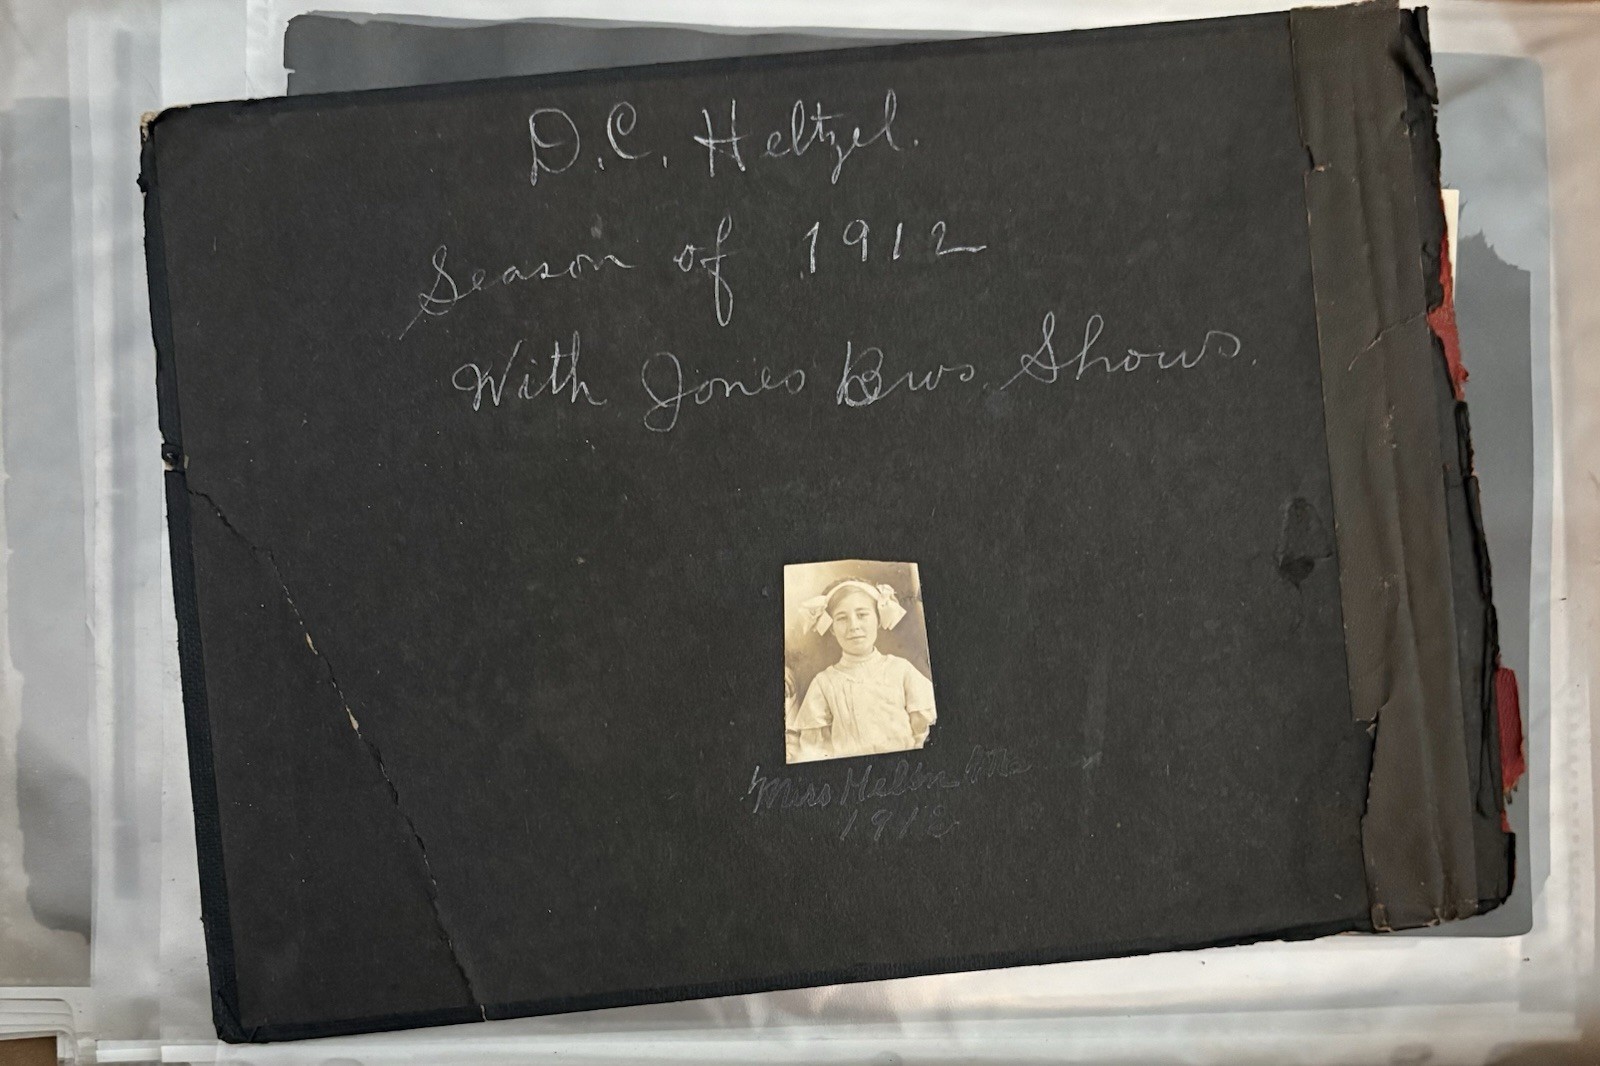 D.C. Heltzel.
Season of 1912
With Jones Bros. Shows.
Miss Helen Mc
1912